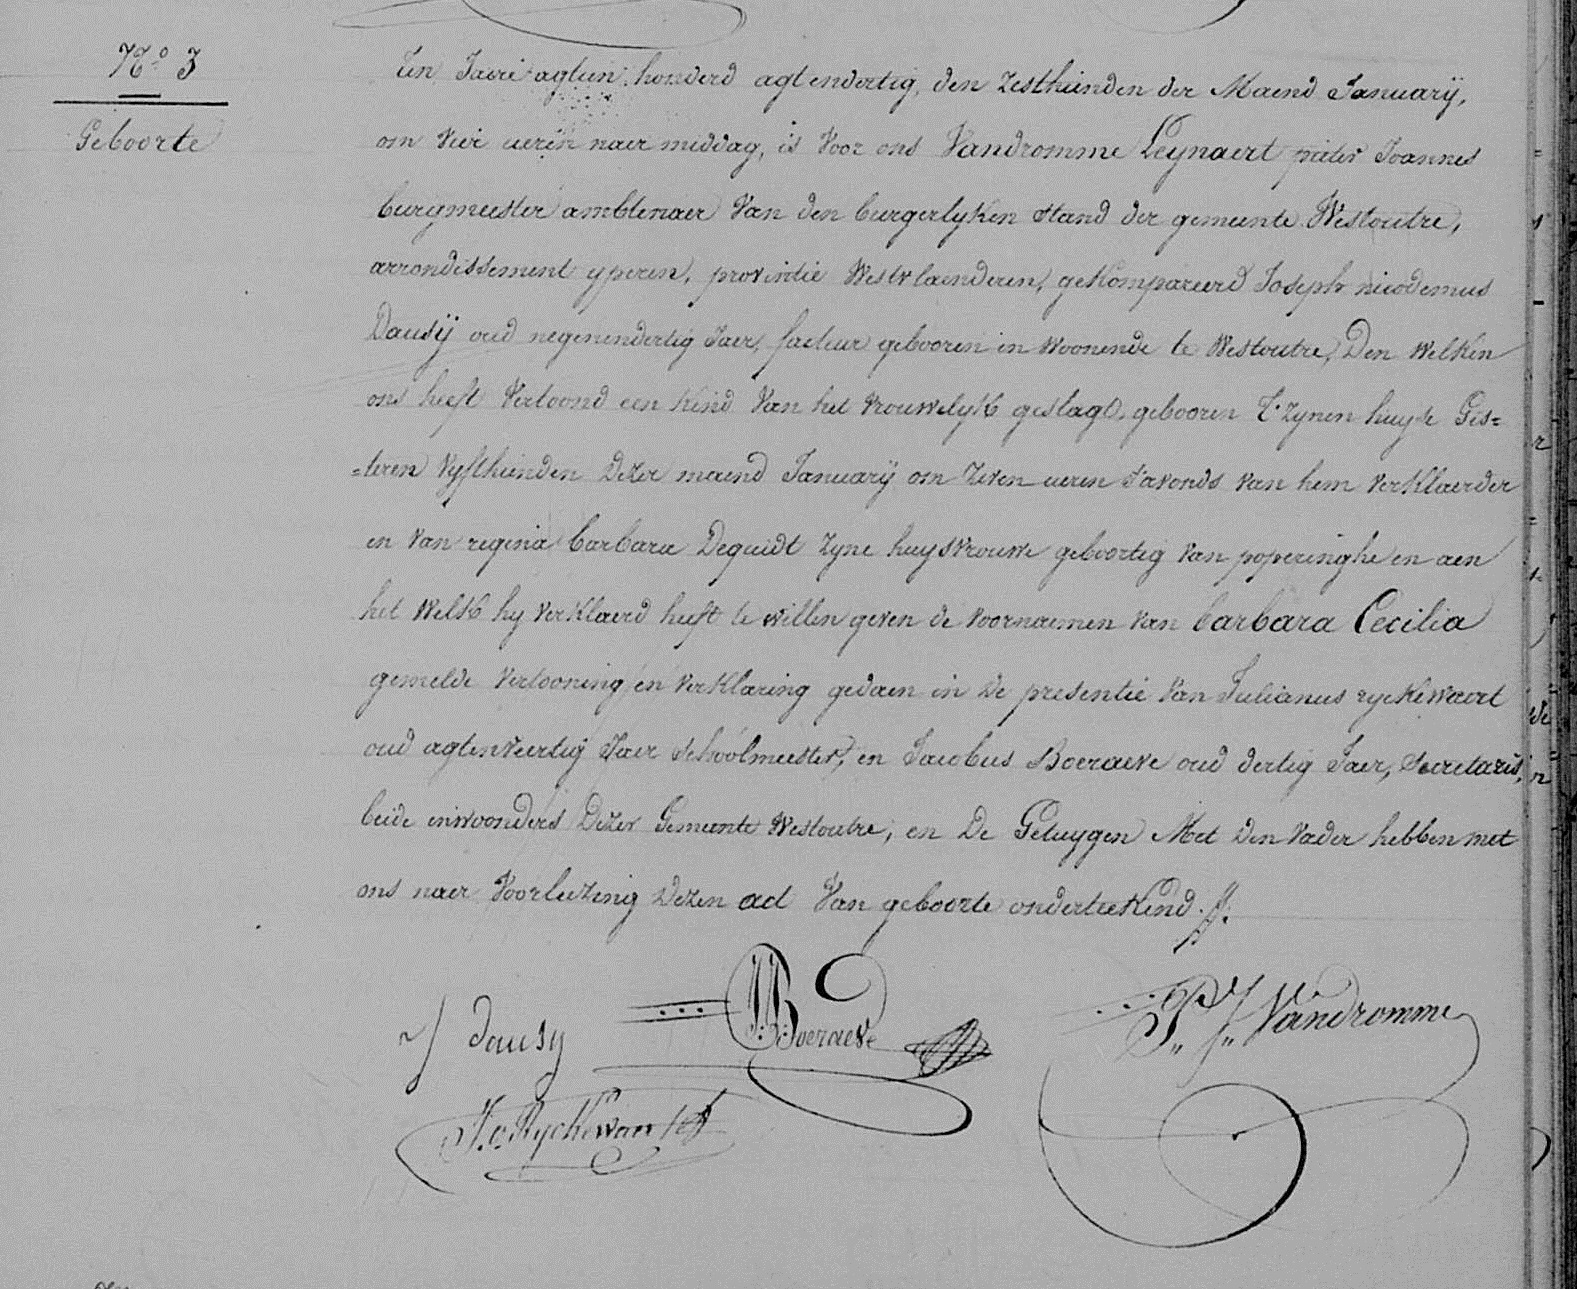 N.º 3
Geboorte
Ten Jaere agtien honderd agt endertig, den zesthienden der Maend January,
om vier ueren naer middag, is voor ons Vandromme Leynaert pieter Joannes
burgmeester amblenaer Van den burgerlyken stand der gemeente Westoutre,
arrondissement yperen, provintie Westvlaenderen, gekompareerd Joseph nicodemus
Dausÿ oud negenendertig Jaer, facteur gebooren en woonende te Westoutre, Den welken
ons heeft Vertoond een kind Van het vrouwelyk geslagt, gebooren t'zynen huyse Gis=
=teren vyfthienden dezer maend Januarÿ om zeven ueren s'avonds van hem verklaerder
en van regina barbara Dequidt zyne huysvrouwe geboortig van poperinghe en aen
het welk hy verklaerd heeft te willen geven de voornaemen van barbara Cecilia
gemelde vertooning en verklaring gedaen in de presentie van Julianus ryckewaert
oud agtenveertig Jaer schoolmeester, en Jacobus Boeraeve oud dertig Jaer, Secretaris,
beide inwoonders dezer Gemeente Westoutre, en de Getuygen Met den vader hebben met
ons naer Voorleezing dezen act Van geboorte onderteekend.
J dausy
J: Boeraeve
P,, J,, Vandromme
J. c. Ryckewaert